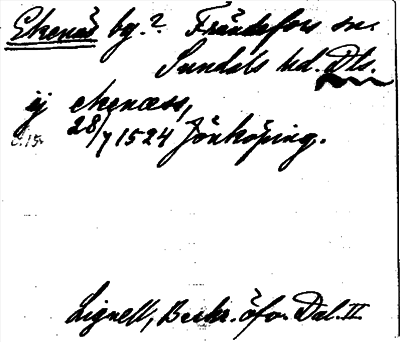 Ekenäs by.? Frändefors sn.
Sundals hd. Dls.
ij ekenæss,
28/7 1524 Jönköping.
c.15.
Lignell, Beskr. öfv. Dal. II.